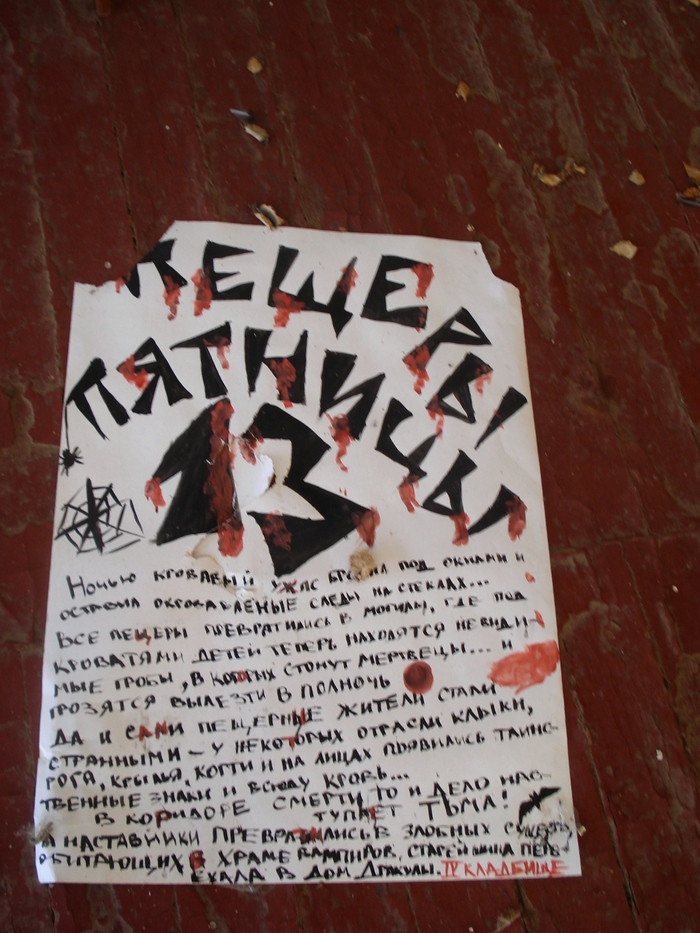 ПЕЩЕРЫ
ПЯТНИЦЫ
13
НОЧЬЮ КРОВАВЫЙ УЖАС БРОДИЛ ПОД ОКНАМИ И
ОСТАВИЛ ОКРОВАВЛЕНЫЕ СЛЕДЫ НА СТЕКЛАХ...
ВСЕ ПЕЩЕРЫ ПРЕВРАТИЛИСЬ В МОГИЛЫ, ГДЕ ПОД
КРОВАТЯМИ ДЕТЕЙ ТЕПЕРЬ НАХОДЯТСЯ НЕВИДИ-
МЫЕ ГРОБЫ, В КОТОРЫХ СТОНУТ МЕРТВЕЦЫ... И
ГРОЗЯТСЯ ВЫЛЕЗТИ В ПОЛНОЧЬ
ДА И САМИ ПЕЩЕРНЫЕ ЖИТЕЛИ СТАЛИ
СТРАННЫМИ – У НЕКОТОРЫХ ОТРАСЛИ КЛЫКИ,
РОГА, КРЫЛЬЯ, КОГТИ И НА ЛИЦАХ ПОЯВИЛИСЬ ТАИНС-
ТВЕННЫЕ ЗНАКИ И ВСЮДУ КРОВЬ...
В КОРИДОРЕ СМЕРТИ ТО И ДЕЛО НАС-
ТУПАЕТ ТЬМА!
А НАСТАВНИКИ ПРЕВРАТИЛИСЬ В ЗЛОБНЫХ СУЩЕСТВ,
ОБИТАЮЩИХ В ХРАМЕ ВАМПИРОВ, СТАРЕЙШИНА ПЕРЕ-
ЕХАЛА В ДОМ ДРАКУЛЫ. IV КЛАДБИЩЕ